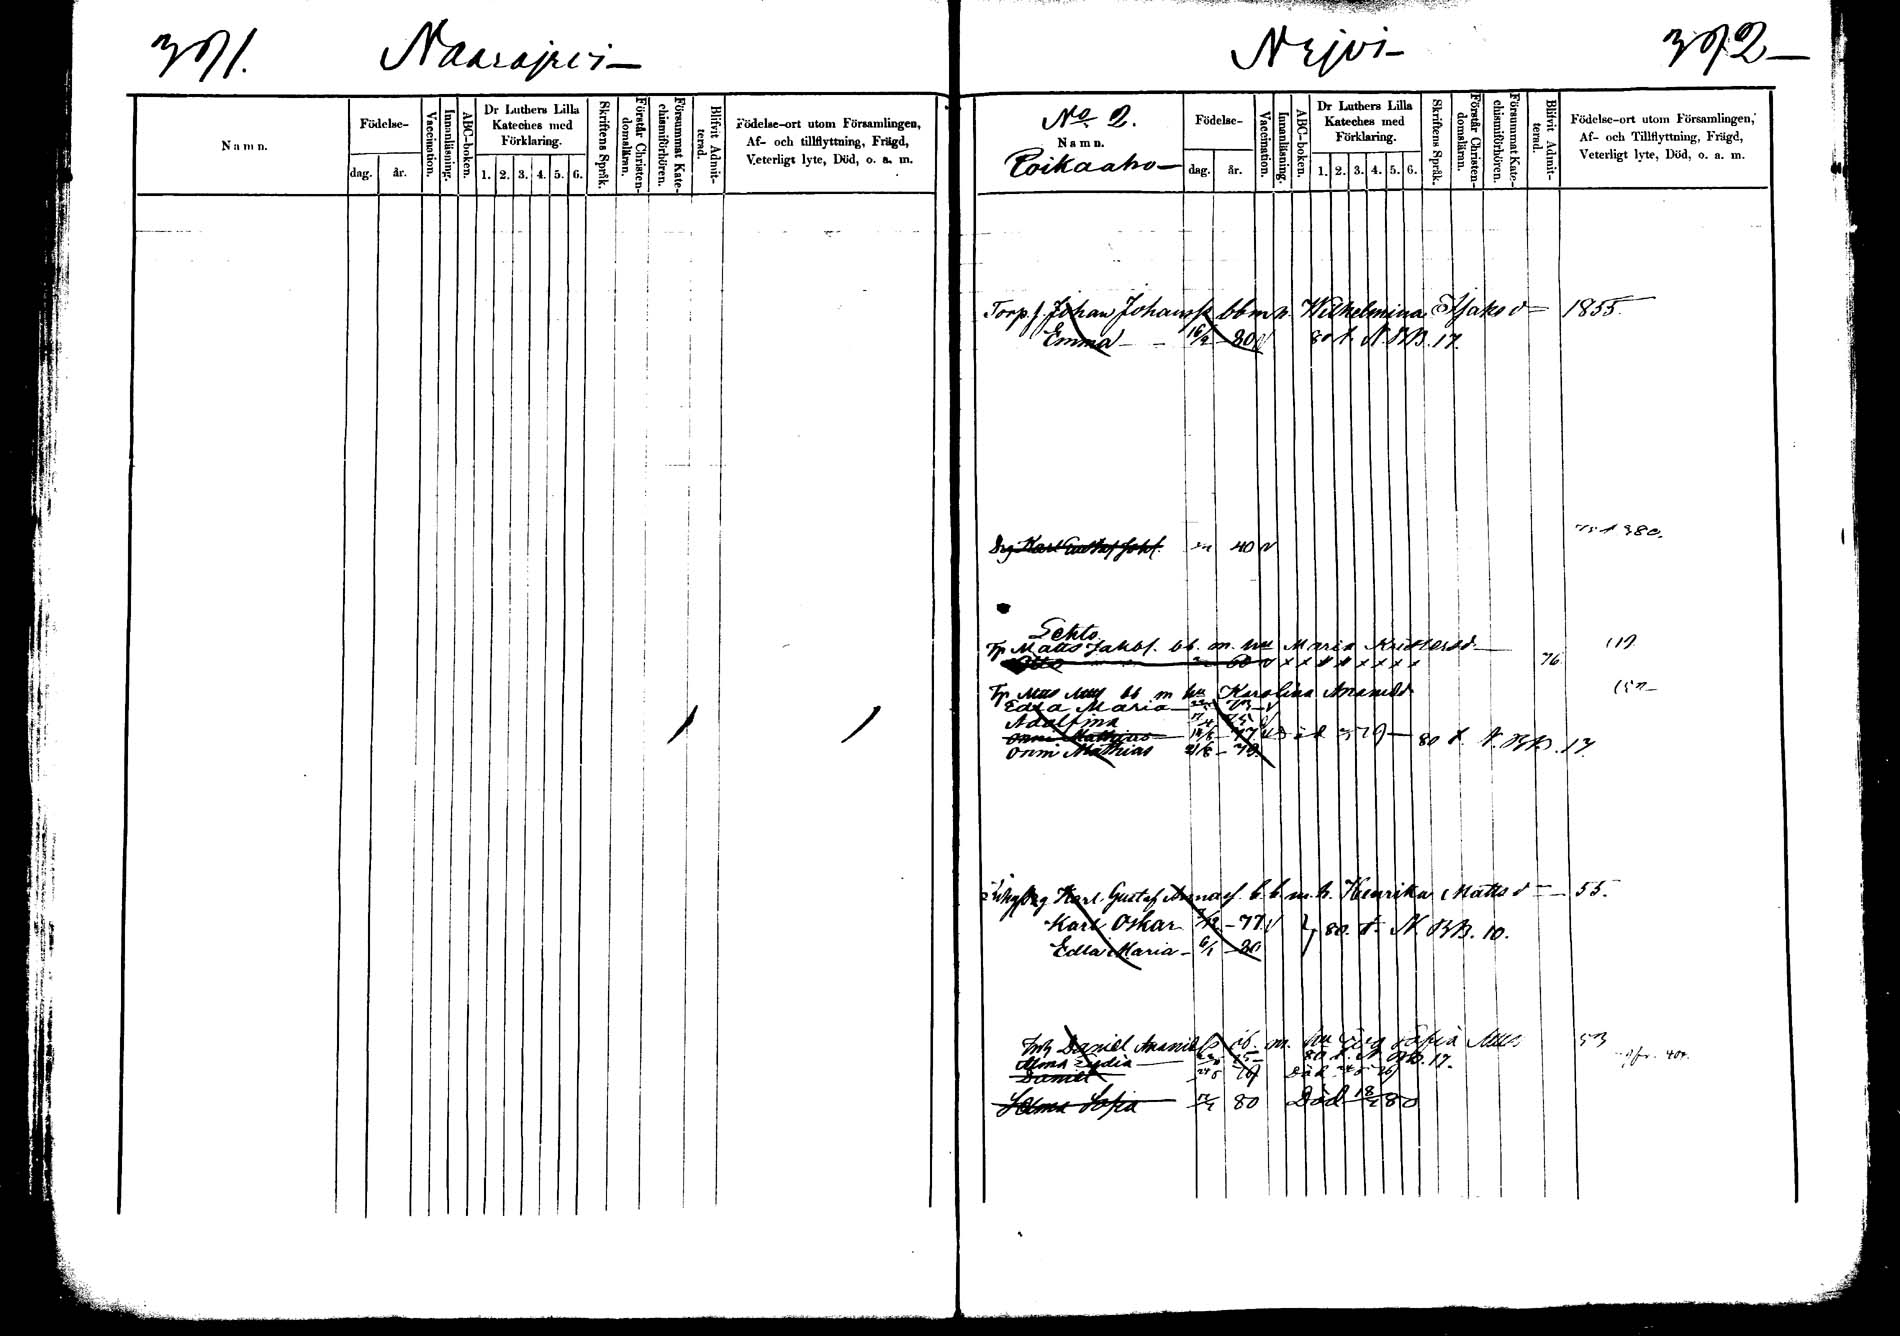 391.
Naarajrvi
Namn.
Födelse-
dag. år.
Vaccination.
Innanläsning.
ABC-boken.
Dr Luthers Lilla
Kateches med
Förklaring.
1. 2. 3. 4. 5. 6.
Skriftens Språk.
Förstår Christen-
domslärn.
Försummat Kate-
chismiförhören.
Blifvit Admit-
terad.
Födelse-ort utom Församlingen,
Af- och tillflyttning, Frägd,
Veterligt lyte, Död, o. a. m.
Nrjvi
392
No 2.
Namn.
Poikaaho
Födelse-
dag. år.
Vaccination.
Innanläsning.
ABC-boken.
Dr Luthers Lilla
Kateches med
Förklaring.
1. 2. 3. 4. 5. 6.
Skriftens Språk.
Förstår Christen-
domslärn.
Försummat Kate-
chismiförhören.
Blifvit Admit-
terad.
Födelse-ort utom Församlingen,
Af- och Tillflyttning, Frägd,
Veterligt lyte, Död, o. a. m.
Torp. f. Johan Johanss bb m h. Wilhelmina Isaks d 1855.
Emma 16/2 80 80 f. N. BB. 17.
Drg Karl Gustaf Joh 40 v 380.
Lehto
Tp Matts Jakobs. bb. m. hu Maria Kristersd
Otto 60 v x x x x x x x x 76
Tp Matts Matts bb m hu Karolina Ananiasd
Edla Maria 73 v
Adolfina 75 v
Onni Mathias 18/8 77 Död 79
Onni Mathias 21/8 79 80 f. N. BB. 17.
Drg Karl Gustaf Ananias. b. b. m. h. Henrika Matts d 55.
Karl Oskar 77 v } 80. f. N. BB. 10.
Edla Maria 6/1 80
Daniel Ananias b. m. hu Eva Sofia Matts 53
Alma Lydia 75 80 f. N. BB. 17.
Daniel 79 Död 79
Selma Sofia 80 Död 80